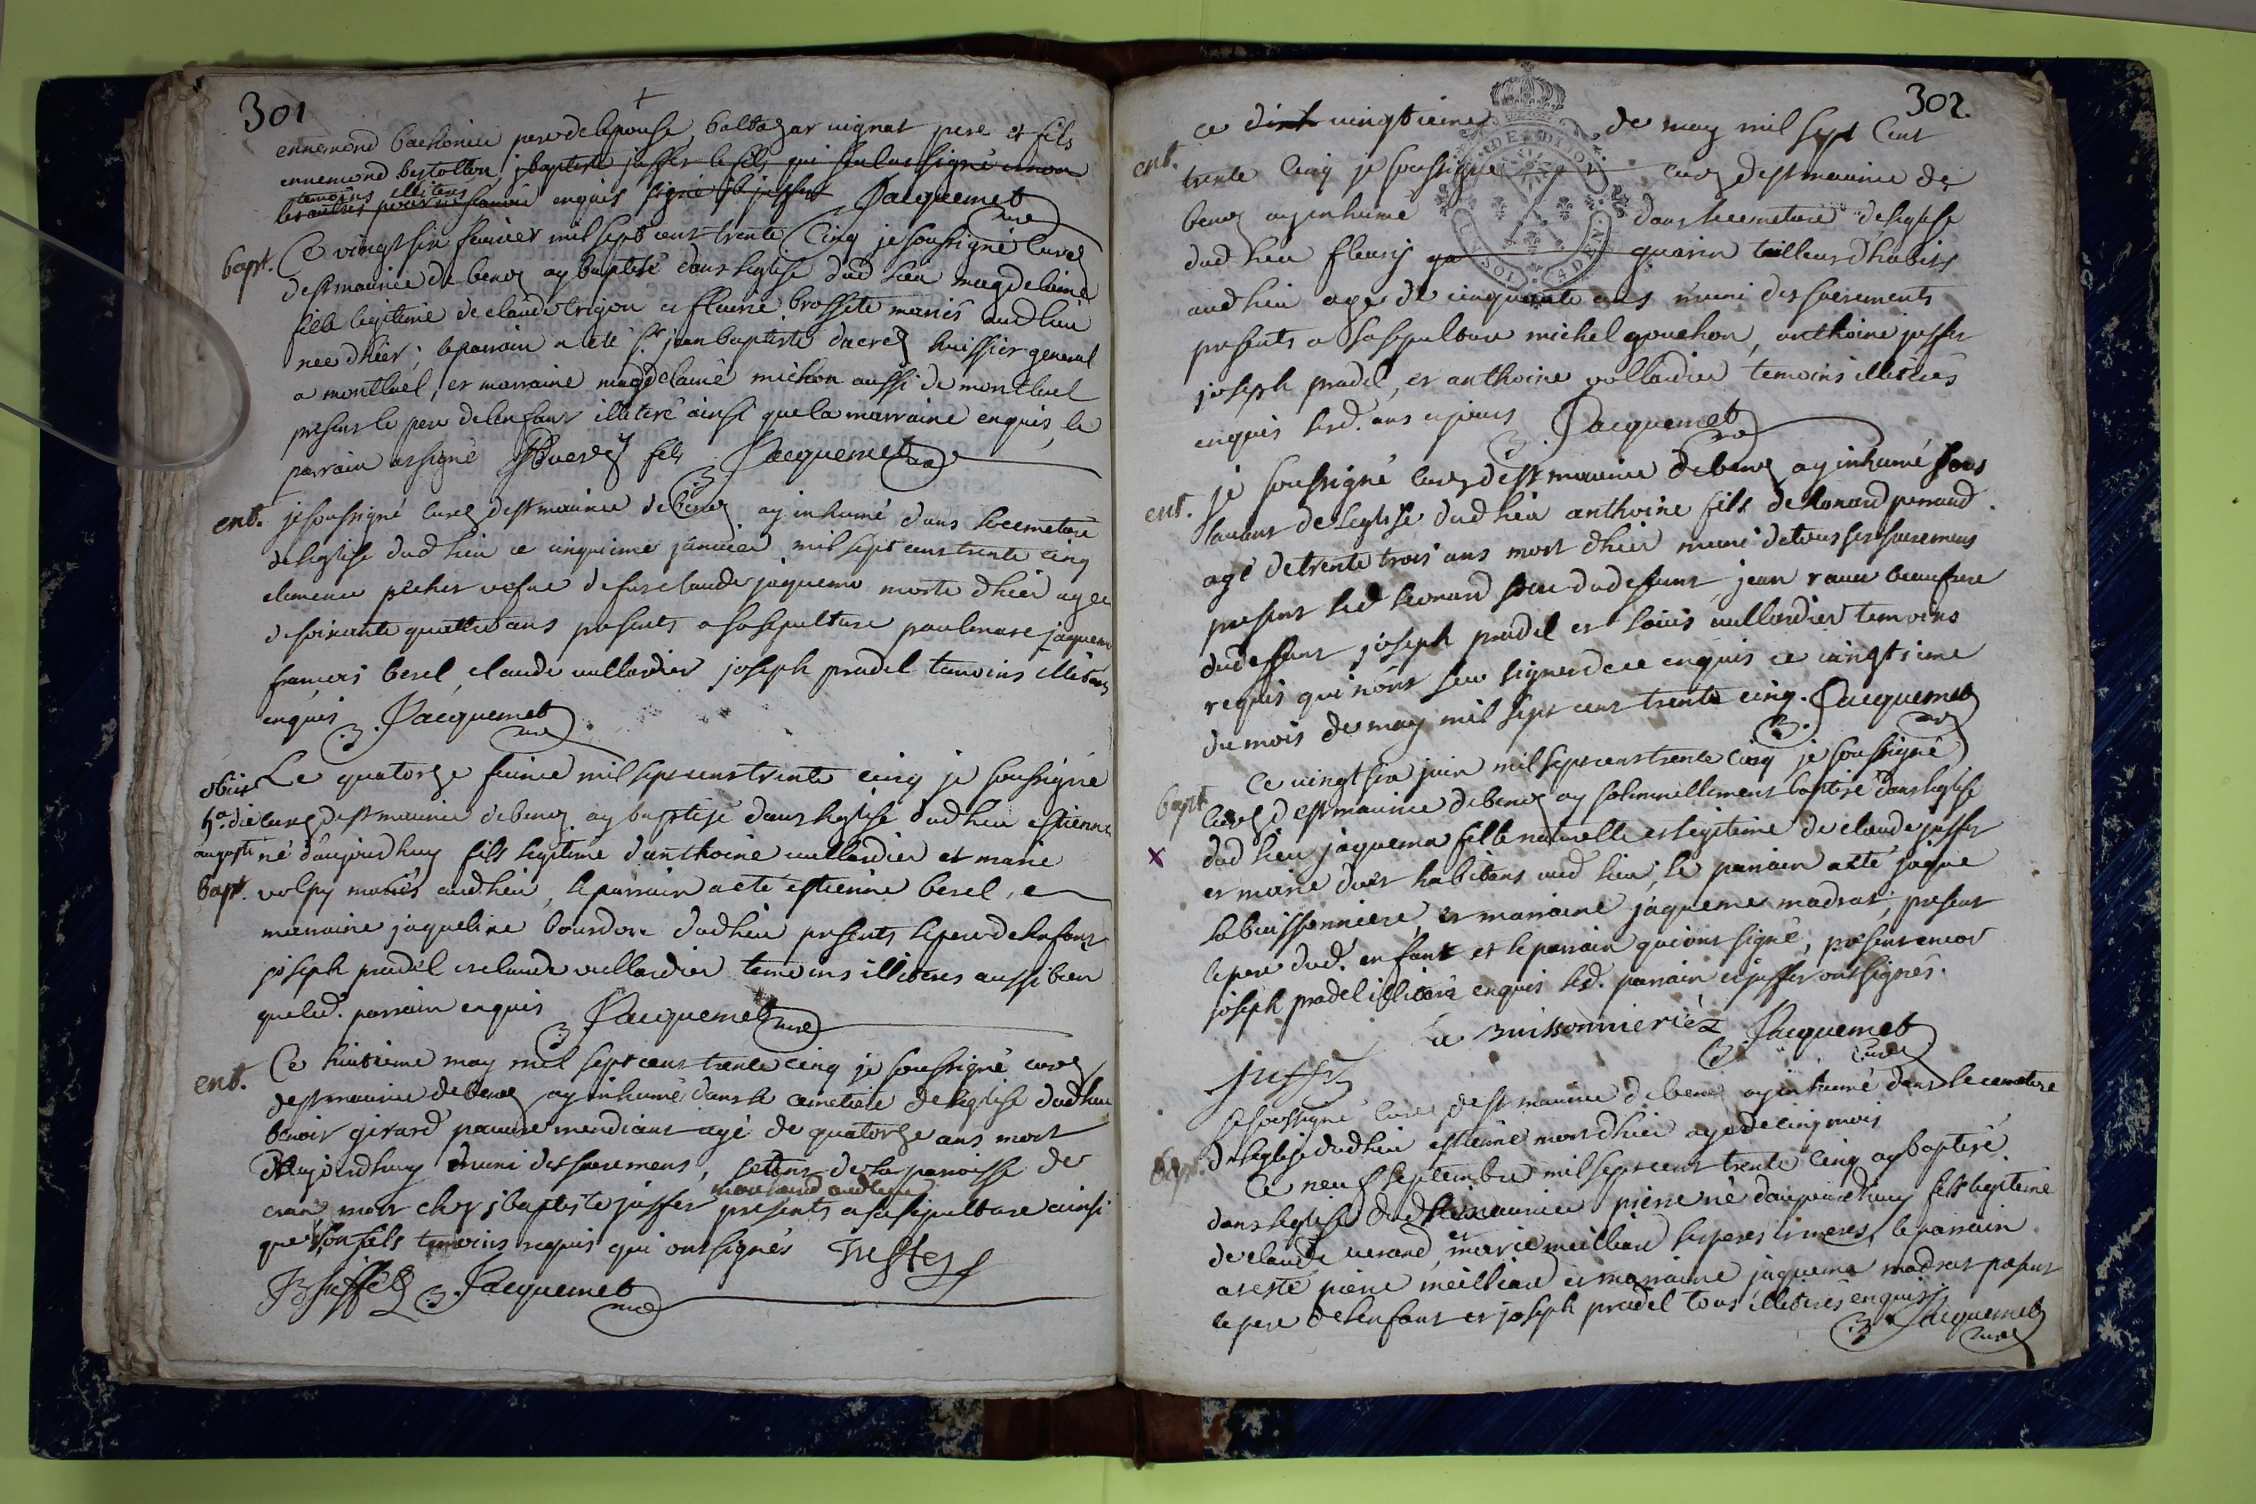 301
ennemond bachonier pere de lepouse, baltazar vignat pere et fils
ennemond bertotton j baptiste juffet le fils qui seul a signé et non
temoins illiteres
les autres pour ne scavoir enquis signé jb juffet Jacquemet
curé
bapt. Ce vingt six fevrier mil sept cent trente cinq je soussigné curé
de st maurice de benoz ay baptisé dans leglise dud lieu magdelaine
fille legitime de claude trigon et fleurie brossete mariés aud lieu
née d'hier; le parrain a été sr jean baptiste huissier general
a montluel, et marraine magdelaine michon aussi de montluel
present le pere de lenfant illiteré ainsi que la marraine enquis, le
parrain a signé fils Jacquemet curé
ent. je soussigné curé de st maurice de benoz ay inhumé dans le cemetiere
de leglise dud lieu ce cinquieme janvier mil sept cent trente cinq
clemence pecher vefve de feu claude jaquemo morte d'hier agée
de soixante quattre ans presents a sa sepulture jaquemo
francois berel, claude vullardier joseph pradel temoins illiteres
enquis Jacquemet
curé
obiit Le quatorze fevrier mil sept cent trente cinq je soussigné
die curé de st maurice de benoz ay baptisé dans leglise dud lieu estienne
augusti né d'aujourdhuy fils legitime d'anthoine vullardier et marie
bapt. volpy mariés aud lieu, le parrain a été estienne berel, et
marraine jaqueline bourdon dud lieu presents le pere de lenfant
joseph pradel et claude vullardier temoins illiteres aussi bien
que led. parrain enquis Jacquemet curé
ent. Ce huitieme may mil sept cent trente cinq je soussigné curé
de st maurice de benoz ay inhumé dans le cemetiere de leglise dud lieu
benoit girard pauvre mendiant agé de quatorze ans mort
d'aujourdhuy muni des sacremens, de la paroisse de
marchand aud lieu
cran mort chez j baptiste juffet presents a sa sepulture ainsi
que son fils temoins requis qui ont signés
JB juffet Jacquemet
curé
302
ce vingtieme de may mil sept cent
ent. trente cinq je soussigné curé de st maurice de
benoz ay inhumé dans le cemetiere de leglise
dud lieu fleury guerin tailleur d'habits
aud lieu agé de cinquante ans muni des sacrements
presents a sa sepulture michel gouchon, anthoine juffet
joseph pradel, et anthoine vollardier temoins illiterés
enquis lesd. ans et jours Jacquemet
curé
ent. je soussigné curé de st maurice de benoz ay inhumé sous
lauvent de leglise dud lieu anthoine fils de leonard perraud
agé de trente trois ans mort d'hier muni de tous ses sacremens
present led leonard pere du deffunt, jean beaufrere
du deffunt joseph pradel et louis vullardier temoins
requis qui n'ont sceu signer de ce enquis ce vingtieme
du mois de may mil sept cent trente cinq. Jacquemet
curé
bapt Ce vingt six juin mil sept cent trente cinq je soussigné
curé de st maurice de benoz ay solemnellement baptisé dans leglise
x dud lieu jaquema fille naturelle et legitime de claude juffet
et marie habitans aud lieu, le parrain a été jaque
labuissonniere, et marraine jaqueme madrat, present
le pere dud. enfant et le parrain qui ont signé, present encor
joseph pradel illiteré enquis led. parrain et juffet ont signés.
La Buissonnierie Jacquemet
juffet curé
je soussigné curé de st maurice de benoz ay inhumé dans le cemetiere
de leglise dud lieu estienne mort d'hier agé de cinq mois
bapt. Ce neuf septembre mil sept cent trente cinq ay baptisé
dans leglise dud st maurice pierre né d'aujourdhuy fils legitime
de claude et marie meilleur ses peres et meres, le parrain
a esté pierre meilleur et marraine jaquema madrat present
le pere de lenfant et joseph pradel tous illiterés enquis
Jacquemet
curé